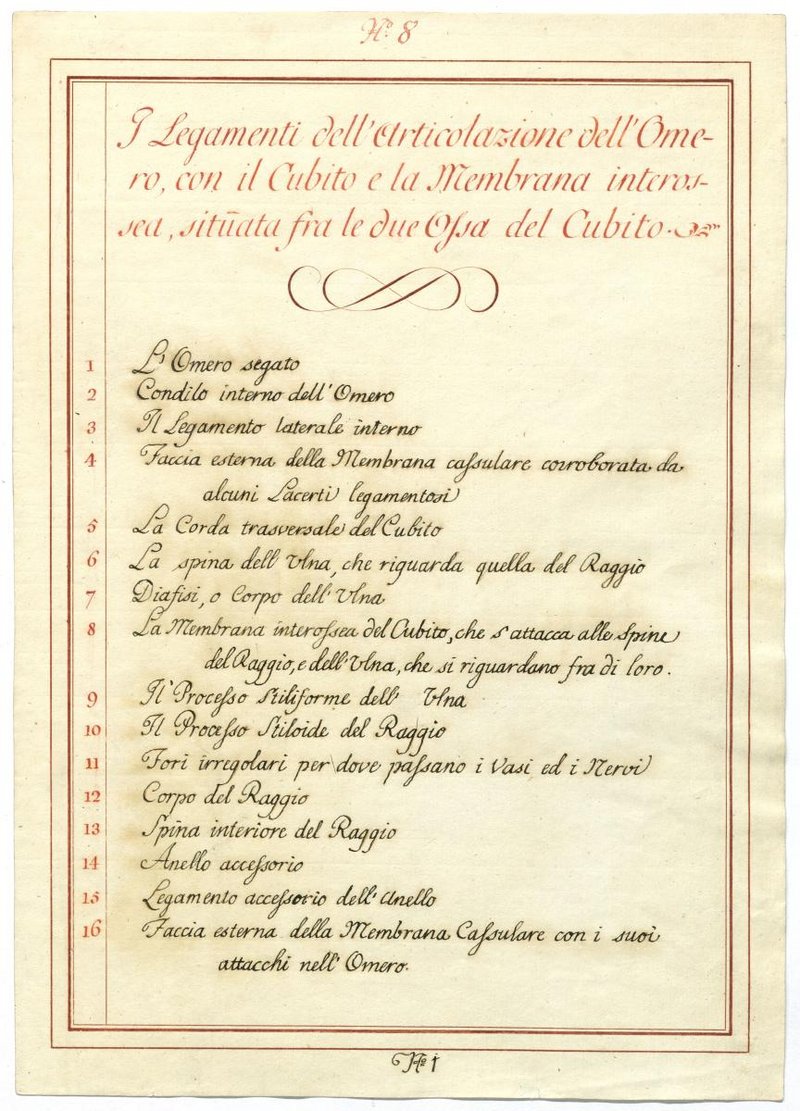 Nº 8
I Legamenti dell'Articolazione dell'Ome-
ro, con il Cubito e la Membrana interos-
sea, sitūata fra le due Ossa del Cubito.
1 L'Omero segato
2 Condilo interno dell'Omero
3 Il Legamento laterale interno
4 Faccia esterna della Membrana cassulare corroborata da
alcuni Lacerti legamentosi
5 La Corda trasversale del Cubito
6 La spina dell'Vlna, che riguarda quella del Raggio
7 Diafisi, o Corpo dell'Vlna
8 La Membrana interossea del Cubito, che s'attacca alle spine
del Raggio, e dell'Vlna, che si riguardano fra di loro.
9 Il Processo Stiliforme dell' Vlna
10 Il Processo Stiloide del Raggio
11 Fori irregolari per dove passano i Vasi ed i Nervi
12 Corpo del Raggio
13 Spina interiore del Raggio
14 Anello accessorio
15 Legamento accessorio dell'Anello
16 Faccia esterna della Membrana Cassulare con i suoi
attacchi nell'Omero.
Nº 1